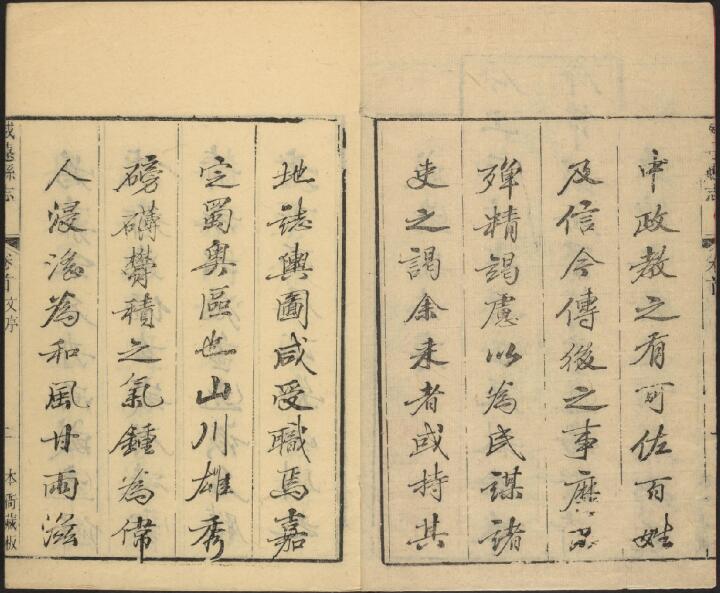 中政教之有可佐百姓
及信今傳後之事靡不
殫精竭慮以為民謀諸
吏之謁余來者或持其
地誌輿圖咸受職焉嘉
定蜀奧區也山川雄秀
磅礴鬱積之氣鍾為偉
人浸淫為和風甘雨滋
威遠縣志
卷首
序
二
本衙藏板